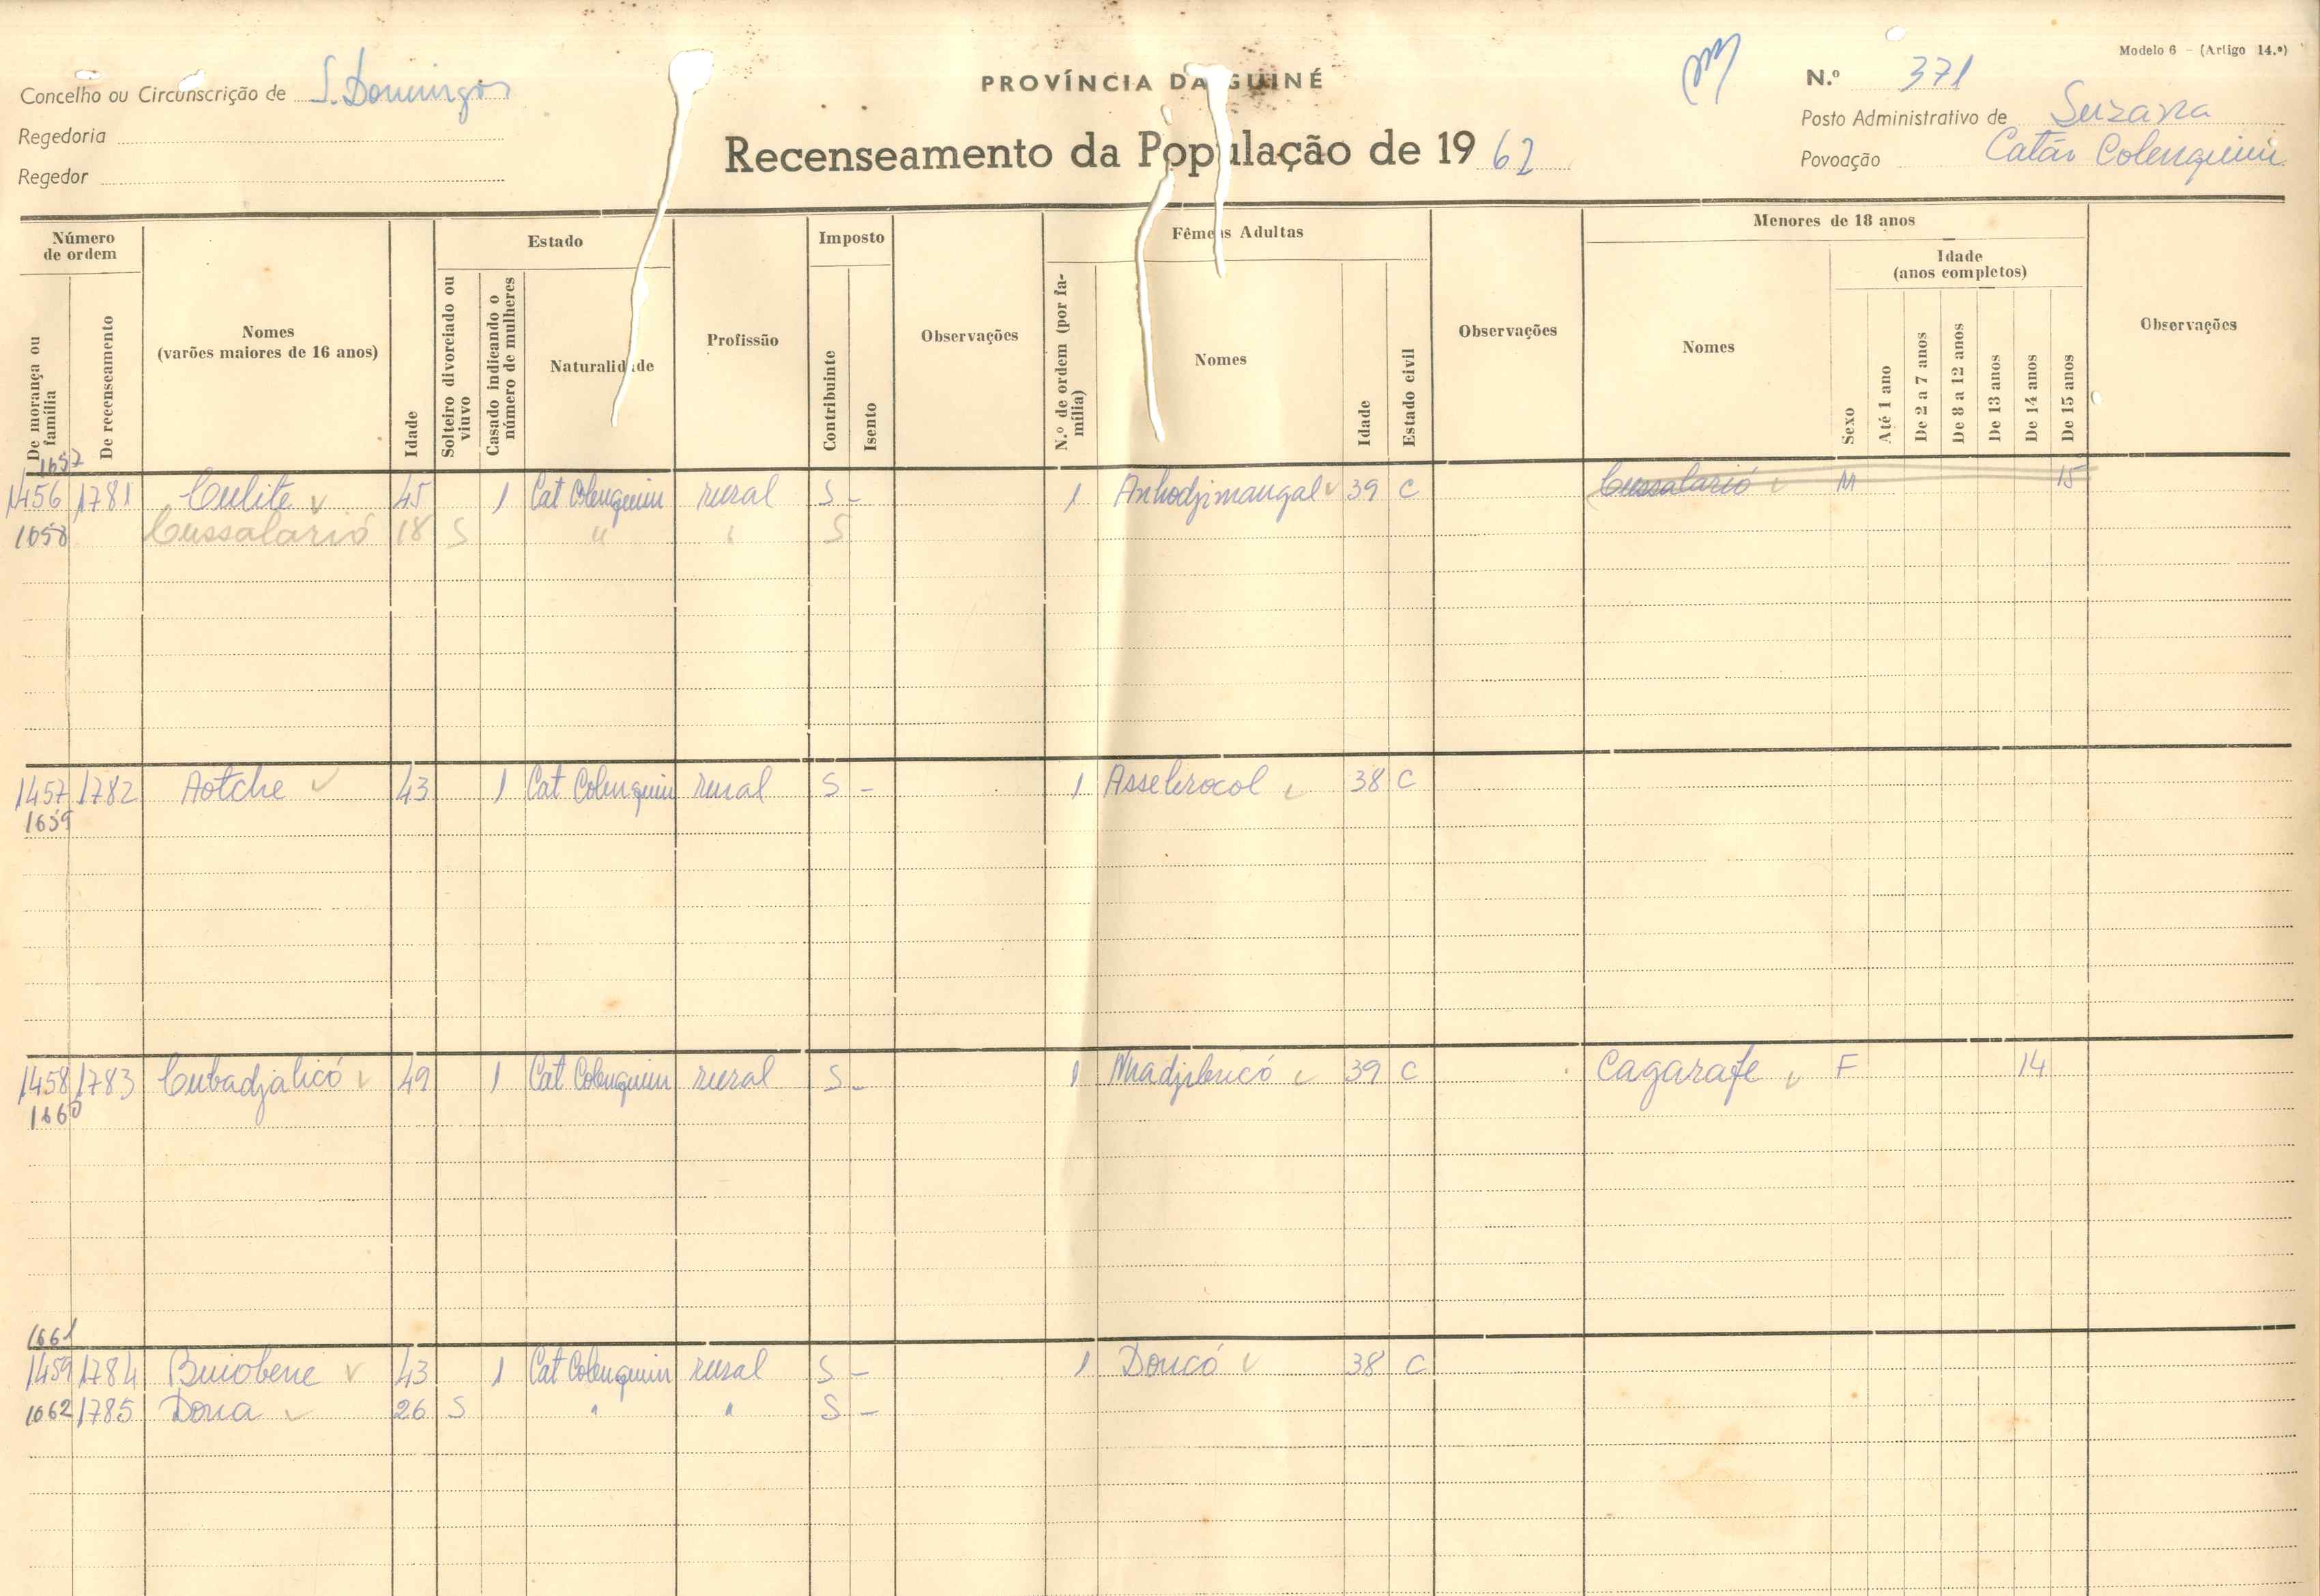 Modelo 6 - (Artigo 14.º)
Concelho ou Circunscrição de S. Domingos
PROVÍNCIA DA GUINÉ
N.º 371
Regedoria
Posto Administrativo de Suzana
Recenseamento da População de 1962
Povoação Catão Colenquim
Regedor
Número de ordem
Estado
Imposto
Fêmeas Adultas
Menores de 18 anos
Idade (anos completos)
De morança ou família
De recenseamento
Nomes (varões maiores de 16 anos)
Idade
Solteiro divorciado ou viuvo
Casado indicando o número de mulheres
Naturalidade
Profissão
Contribuinte
Isento
Observações
N.º de ordem (por família)
Nomes
Idade
Estado civil
Observações
Nomes
Sexo
Até 1 ano
De 2 a 7 anos
De 8 a 12 anos
De 13 anos
De 14 anos
De 15 anos
Observações
1657
1456 1781 Culite 45 1 Cat Colenquim rural S - 1 Anhodjimangal 39 C Cussalarió M 15
1658 Cussalarió 18 S " " S
1457 1782 Aotche 43 1 Cat Colenquim rural S - 1 Asselerocol 38 C
1659
1458 1783 Cubadjalicó 49 1 Cat Colenquim rural S - 1 39 C Cagarafe F 14
1660
1661
1459 1784 Buiobene 43 1 Cat Colenquim rural S - 1 Doucó 38 C
1662 1785 Doua 26 S " " S -